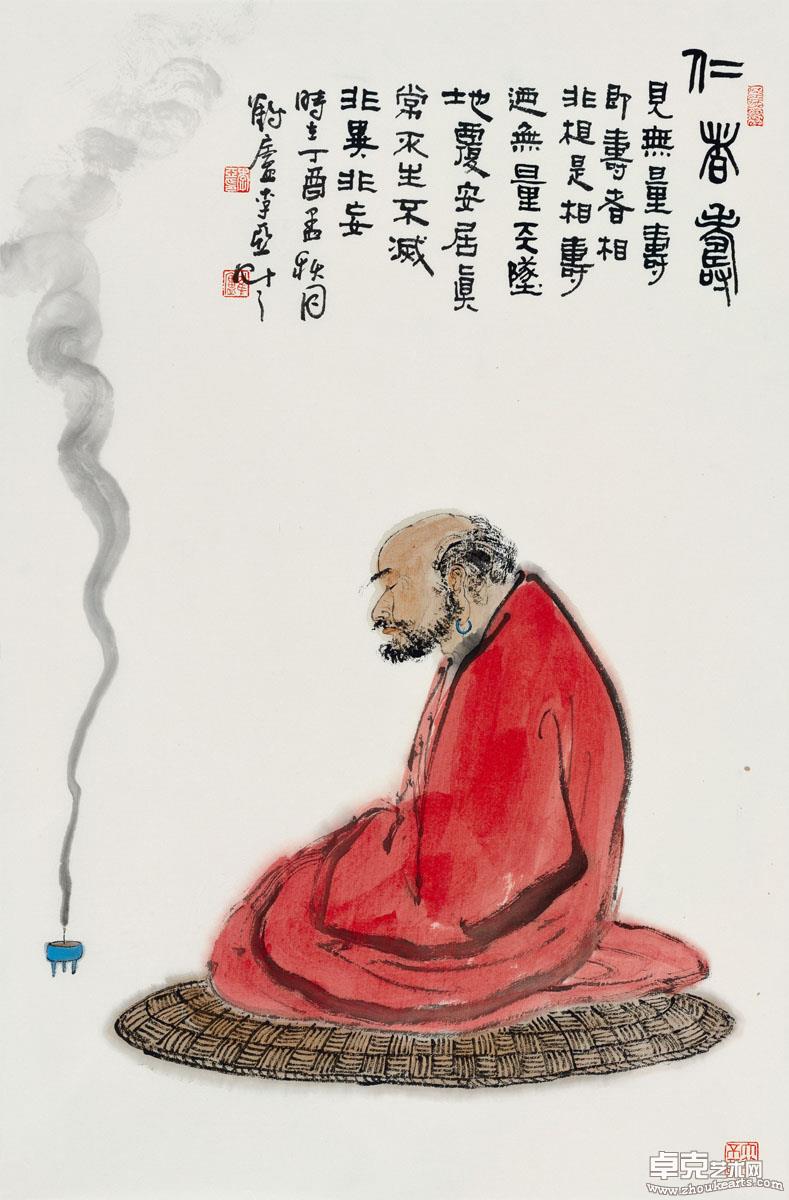 仁者壽
見無量壽
即壽者相
非相是相壽
迺無量天墜
地覆安居真
常不生不滅
非異非妄
時在丁酉孟秋月
廬李亞
卓克艺术网
www.zhoukearts.com